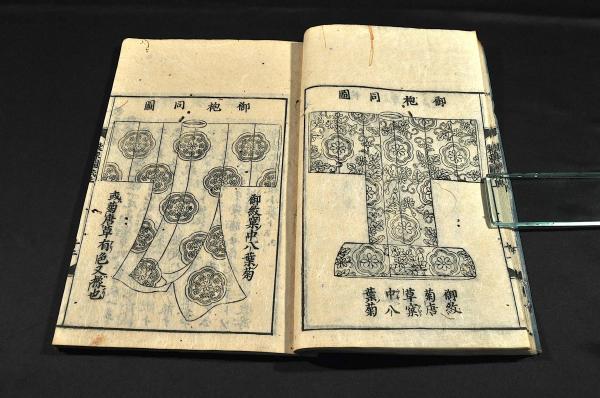 御袍同圖
御紋
菊唐
草窠
中八
葉菊
御袍同圖
御紋窠中八葉菊
或菊唐草有色又樣也